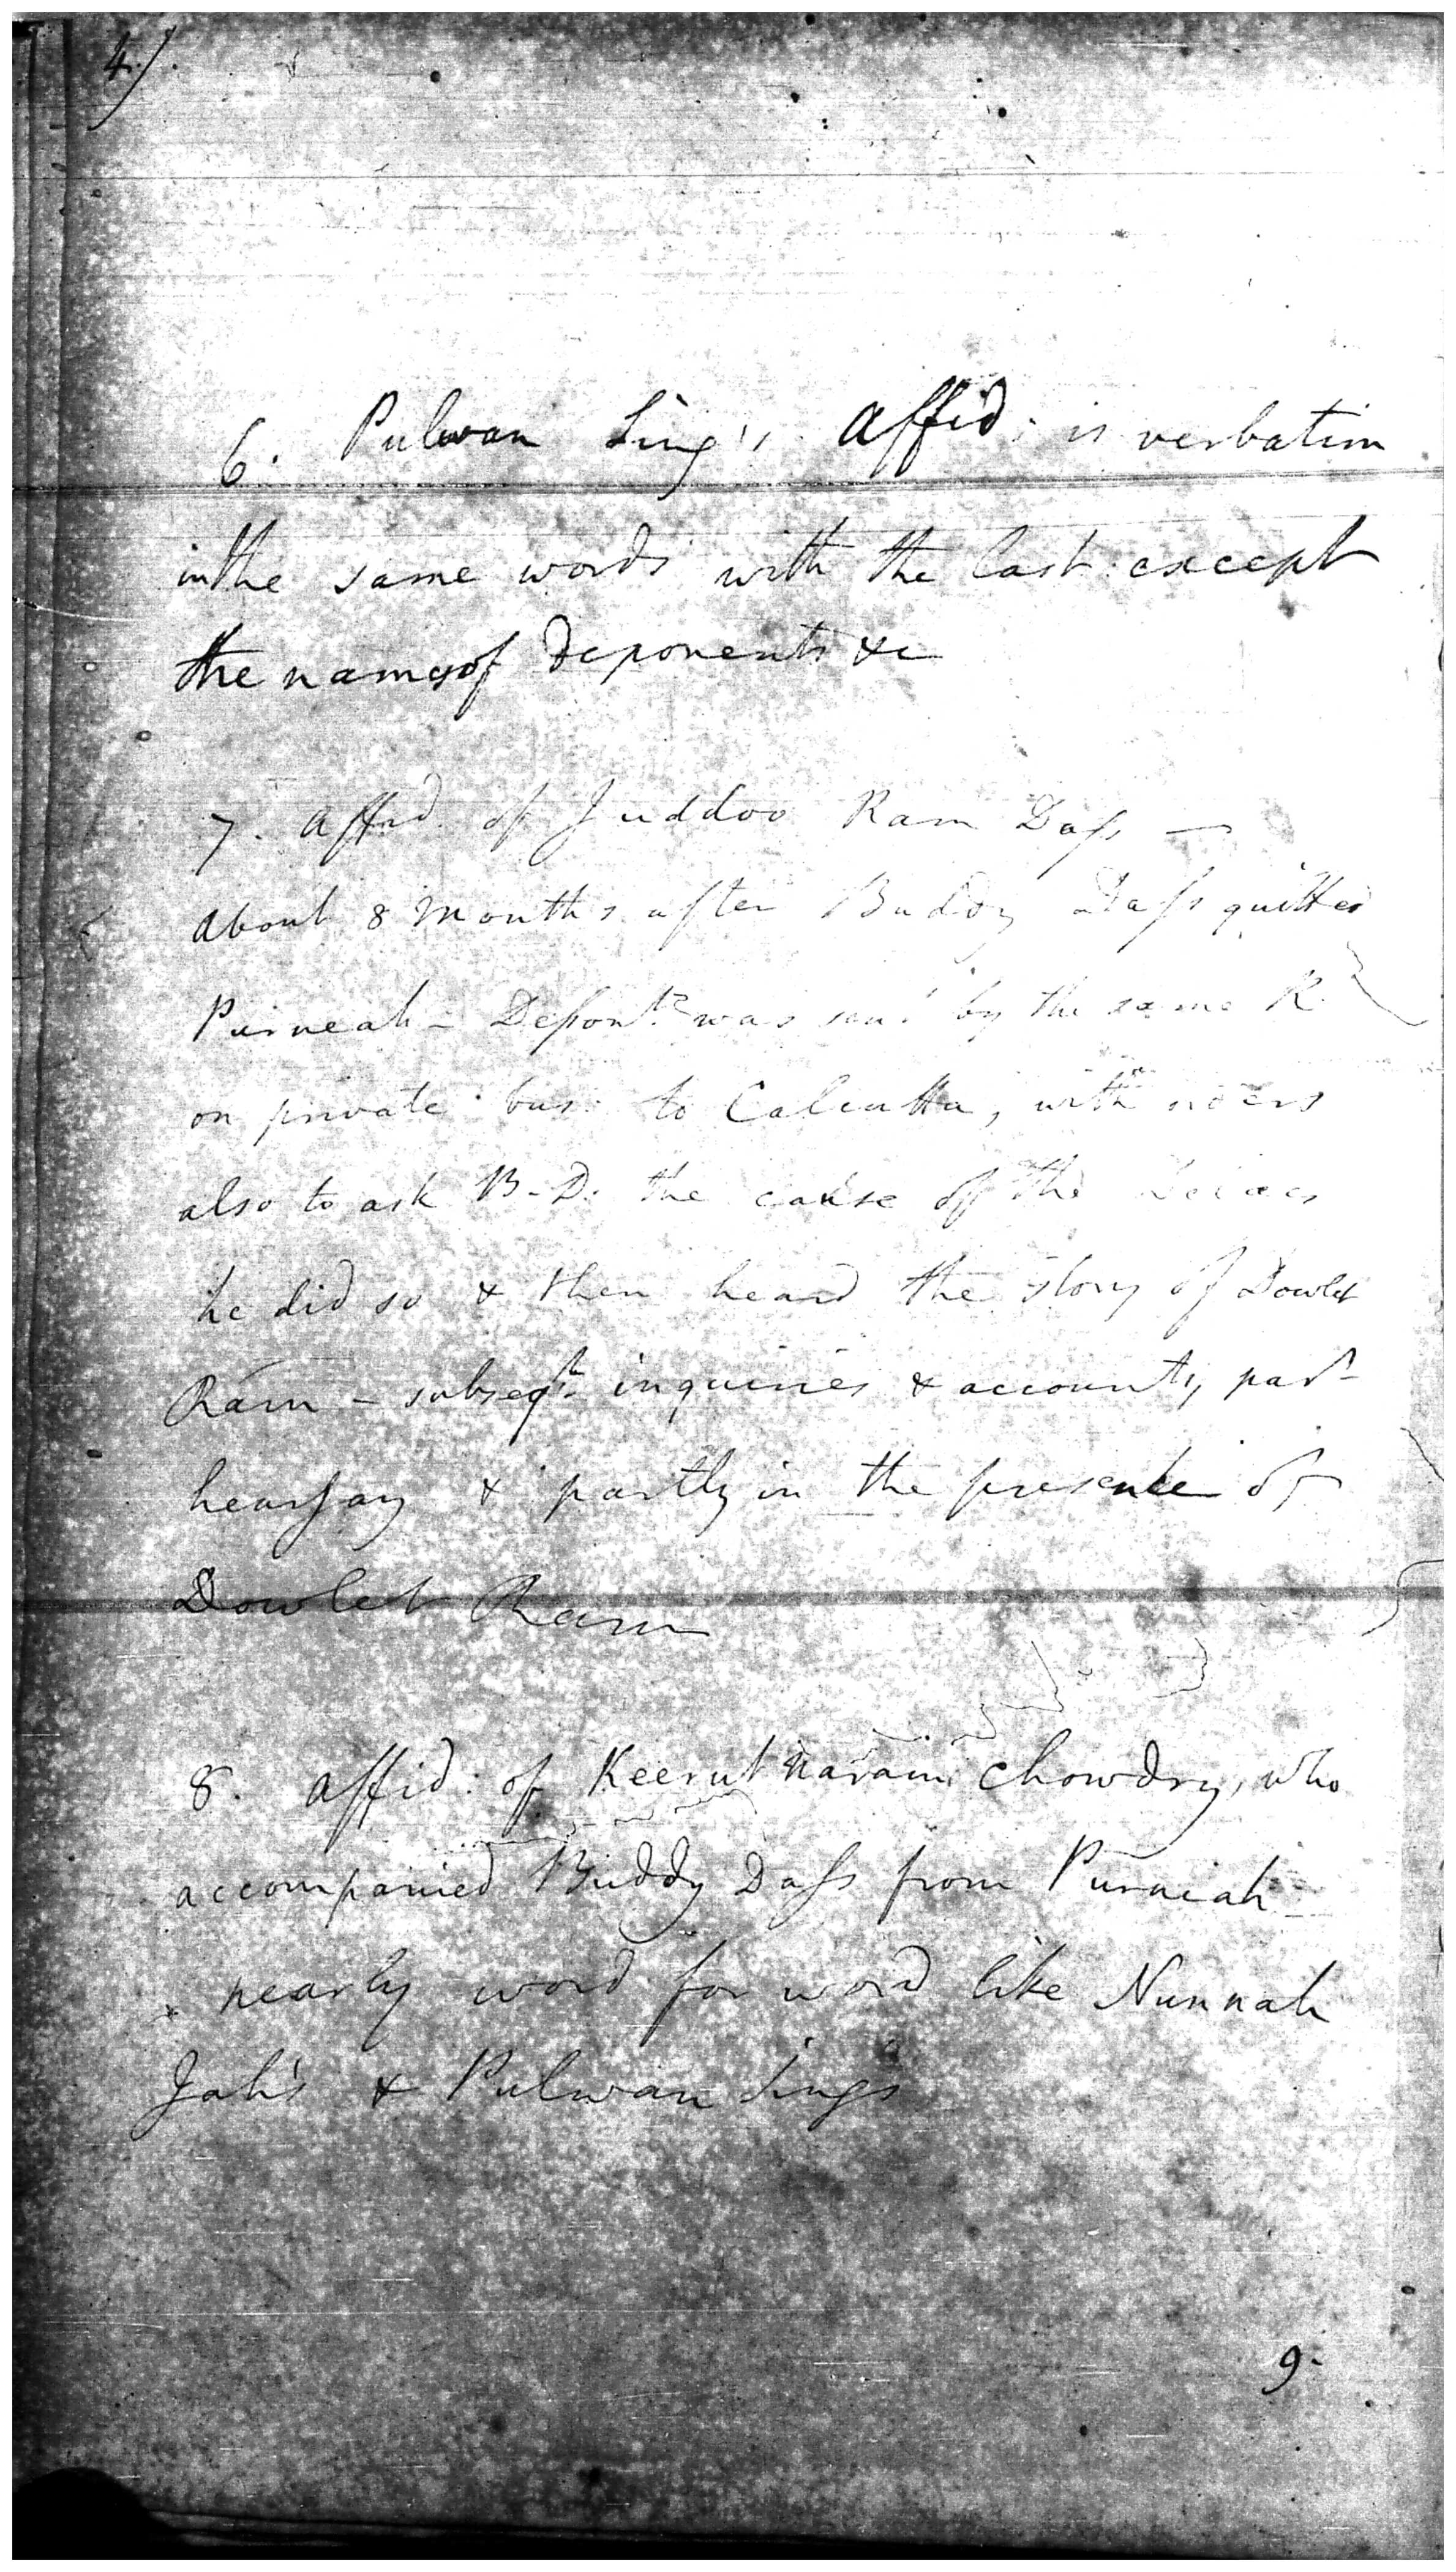 4/.
6. Pulwan Sing's Affid: is verbatim
in the same words with the last except
the names of Deponents &c
7. Affid. of Juddoo Ram Dass —
About 8 Months after Buddy Dass quitted
Purneah - Depont. was sent by the same R.
on private bus: to Calcutta, with orders
also to ask B-D. the cause of the
he did so & then heard the story of Dowlet
Ram - subseqt. inquiries & accounts, part
hearsay & partly in the presence of
Dowlet Ram
8. Affid: of Keerut Narain Chowdry, who
accompanied Buddy Dass from Purneah
nearly word for word like Nunnah
Jah's & Pulwan Sings
9.